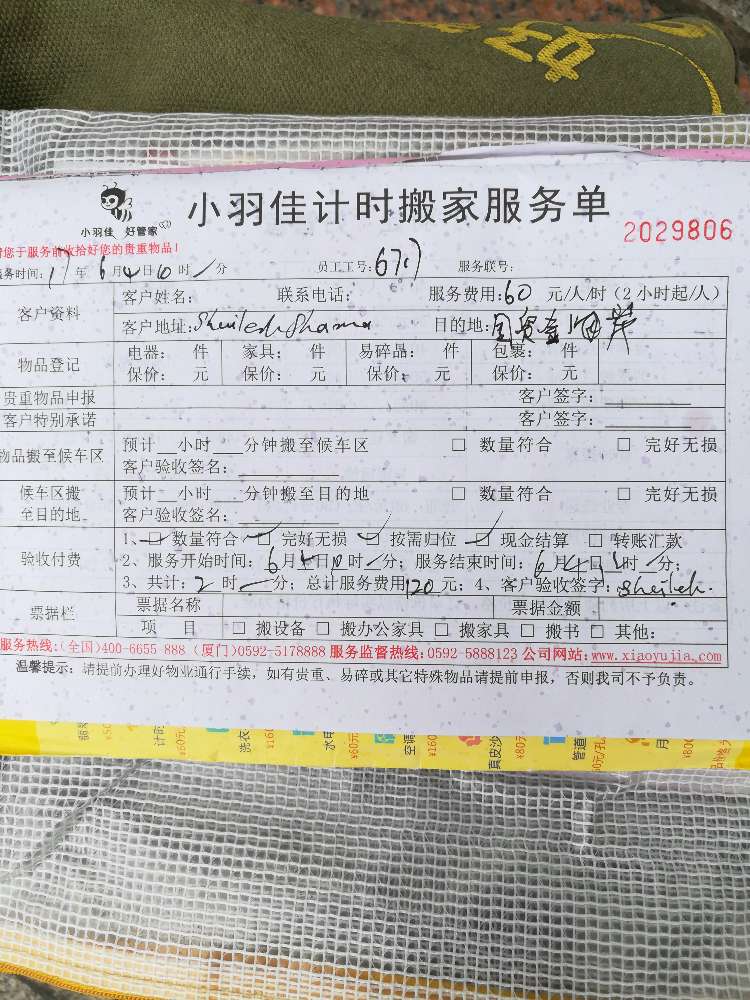 小羽佳计时搬家服务单
小羽佳 好管家
2029806
请您于服务前收拾好您的贵重物品!
服务时间: 17 年 6 月 4 日 10 时 / 分 员工工号: 6717 服务联号:
客户资料
客户姓名: 联系电话: 服务费用: 60 元/人/时(2小时起/人)
客户地址: 目的地:
物品登记
电器: 件 家具: 件 易碎品: 件 包裹: 件
保价: 元 保价: 元 保价: 元 保价: 元
贵重物品申报 客户签字:
客户特别承诺 客户签字:
物品搬至候车区
预计__小时___分钟搬至候车区 □ 数量符合 □ 完好无损
客户验收签名:
候车区搬至目的地
预计__小时___分钟搬至目的地 □ 数量符合 □ 完好无损
客户验收签名:
验收付费
1、□ 数量符合 □ 完好无损 □ 按需归位 □ 现金结算 □ 转账汇款
2、服务开始时间: 6 月 4 日 时 / 分; 服务结束时间: 6 月 4 日 时 / 分;
3、共计: 2 时 / 分; 总计服务费用 120 元; 4、客户验收签字:
票据栏
票据名称 票据金额
项 目 □ 搬设备 □ 搬办公家具 □ 搬家具 □ 搬书 □ 其他:
服务热线:(全国)400-6655-888 (厦门)0592-5178888 服务监督热线:0592-5888123 公司网站:www.xiaoyujia.com
温馨提示: 请提前办理好物业通行手续, 如有贵重、易碎或其它特殊物品请提前申报, 否则我司不予负责。